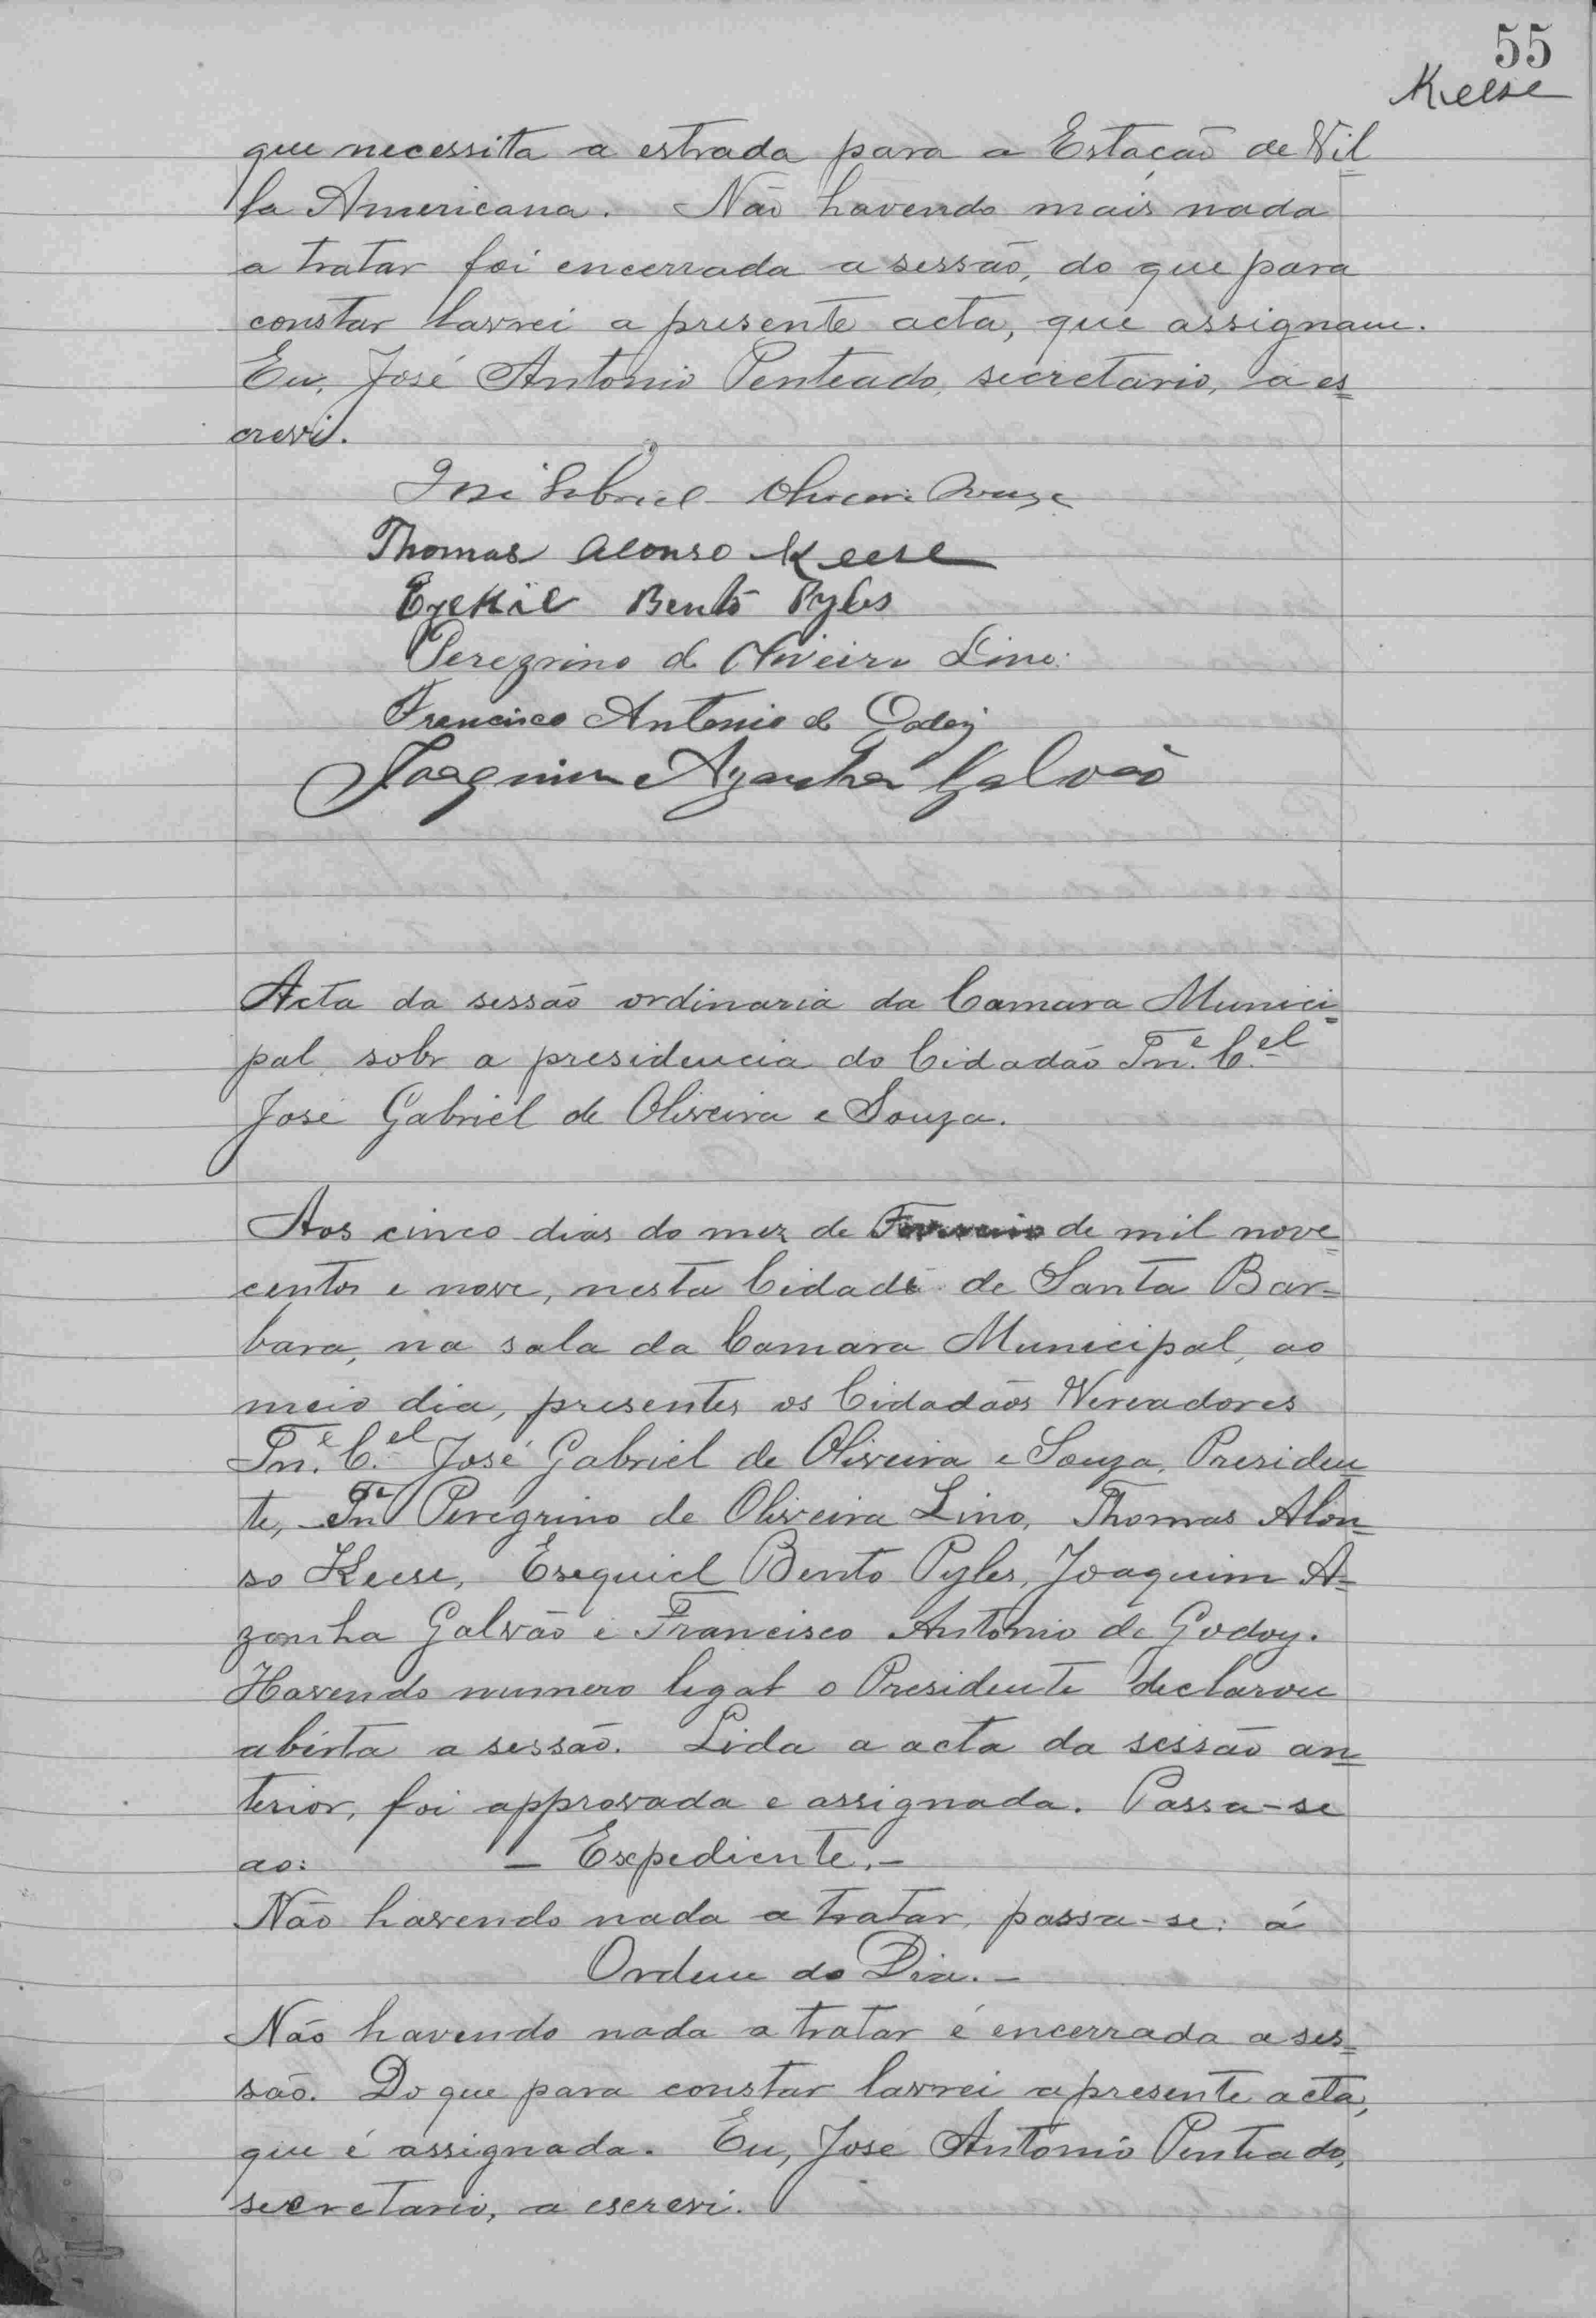 55
Keese
que necessita a estrada para a Estação de Vil=
la Americana. Não havendo mais nada
a tratar foi encerrada a sessão, do que para
constar lavrei a presente acta, que assignam.
Eu, José Antonio Penteado, secretario, a es=
crevi.
José Gabriel Oliveira Souza
Thomas Alonso Keese
Ezekiel Bento Pyles
Peregrino de Oliveira Lino.
Francisco Antonio de Godoy
Joaquim Azanha Galvão
Acta da sessão ordinaria da Camara Munici=
pal sob a presidencia do Cidadão Tn.e C.el
José Gabriel de Oliveira e Souza.
Aos cinco dias do mez de Fevereiro de mil nove=
centos e nove, nesta Cidade de Santa Bar=
bara, na sala da Camara Municipal, ao
meio dia, presentes os Cidadãos Vereadores
Tn.e C.el José Gabriel de Oliveira e Souza, Presiden=
te, Tn.e Peregrino de Oliveira Lino, Thomas Alon=
so Keese, Esequiel Bento Pyles, Joaquim A=
zanha Galvão e Francisco Antonio de Godoy.
Havendo numero legal o Presidente declarou
aberta a sessão. Lida a acta da sessão an=
terior, foi approvada e assignada. Passa-se
ao: – Expediente. –
Não havendo nada a tratar, passa-se: á
Ordem do Dia. –
Não havendo nada a tratar é encerrada a ses=
são. Do que para constar lavrei a presente acta,
que é assignada. Eu, José Antonio Penteado,
secretario, a escrevi.